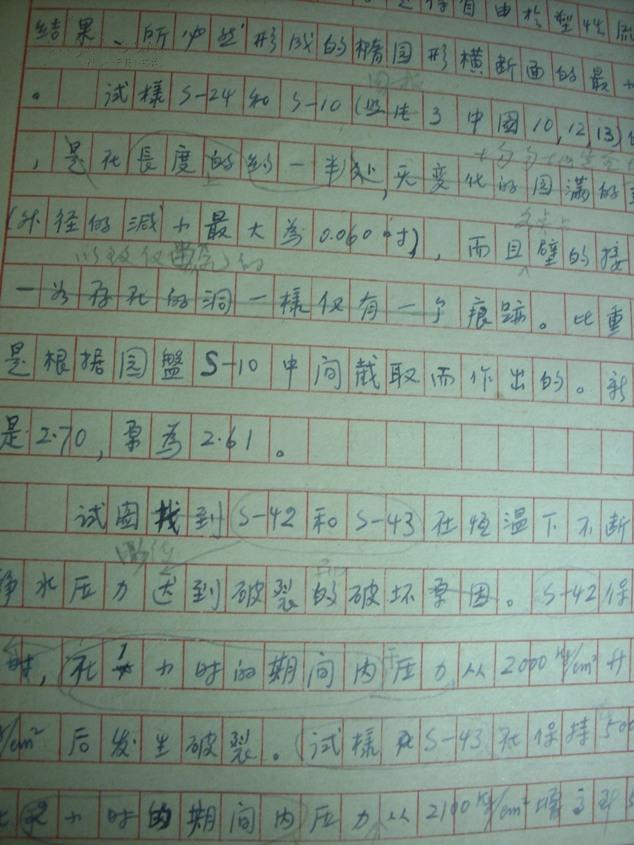 自由
结果、所必然形成的椭园形横断面的最
。 试様S-24和S-10(照片3中國10,12,13)
,是在長度的约一半处,无变化的园满的
(外径的减小最大為0.060吋),而且壁的接
一为存在的洞一様仅有一个痕跡。比重
是根据园盤S-10中间截取而作出的。新
是2.70,原為2.61。
试圖找到S-42和S-43在恒温下不断
净水压力达到破裂的破坏原因。S-42保
時,在1小时的期间内压力从2000kg/cm²升
/cm²后发生破裂。(试様S-43在保持500
2小时的期间内压力从2100kg/cm²增高到5